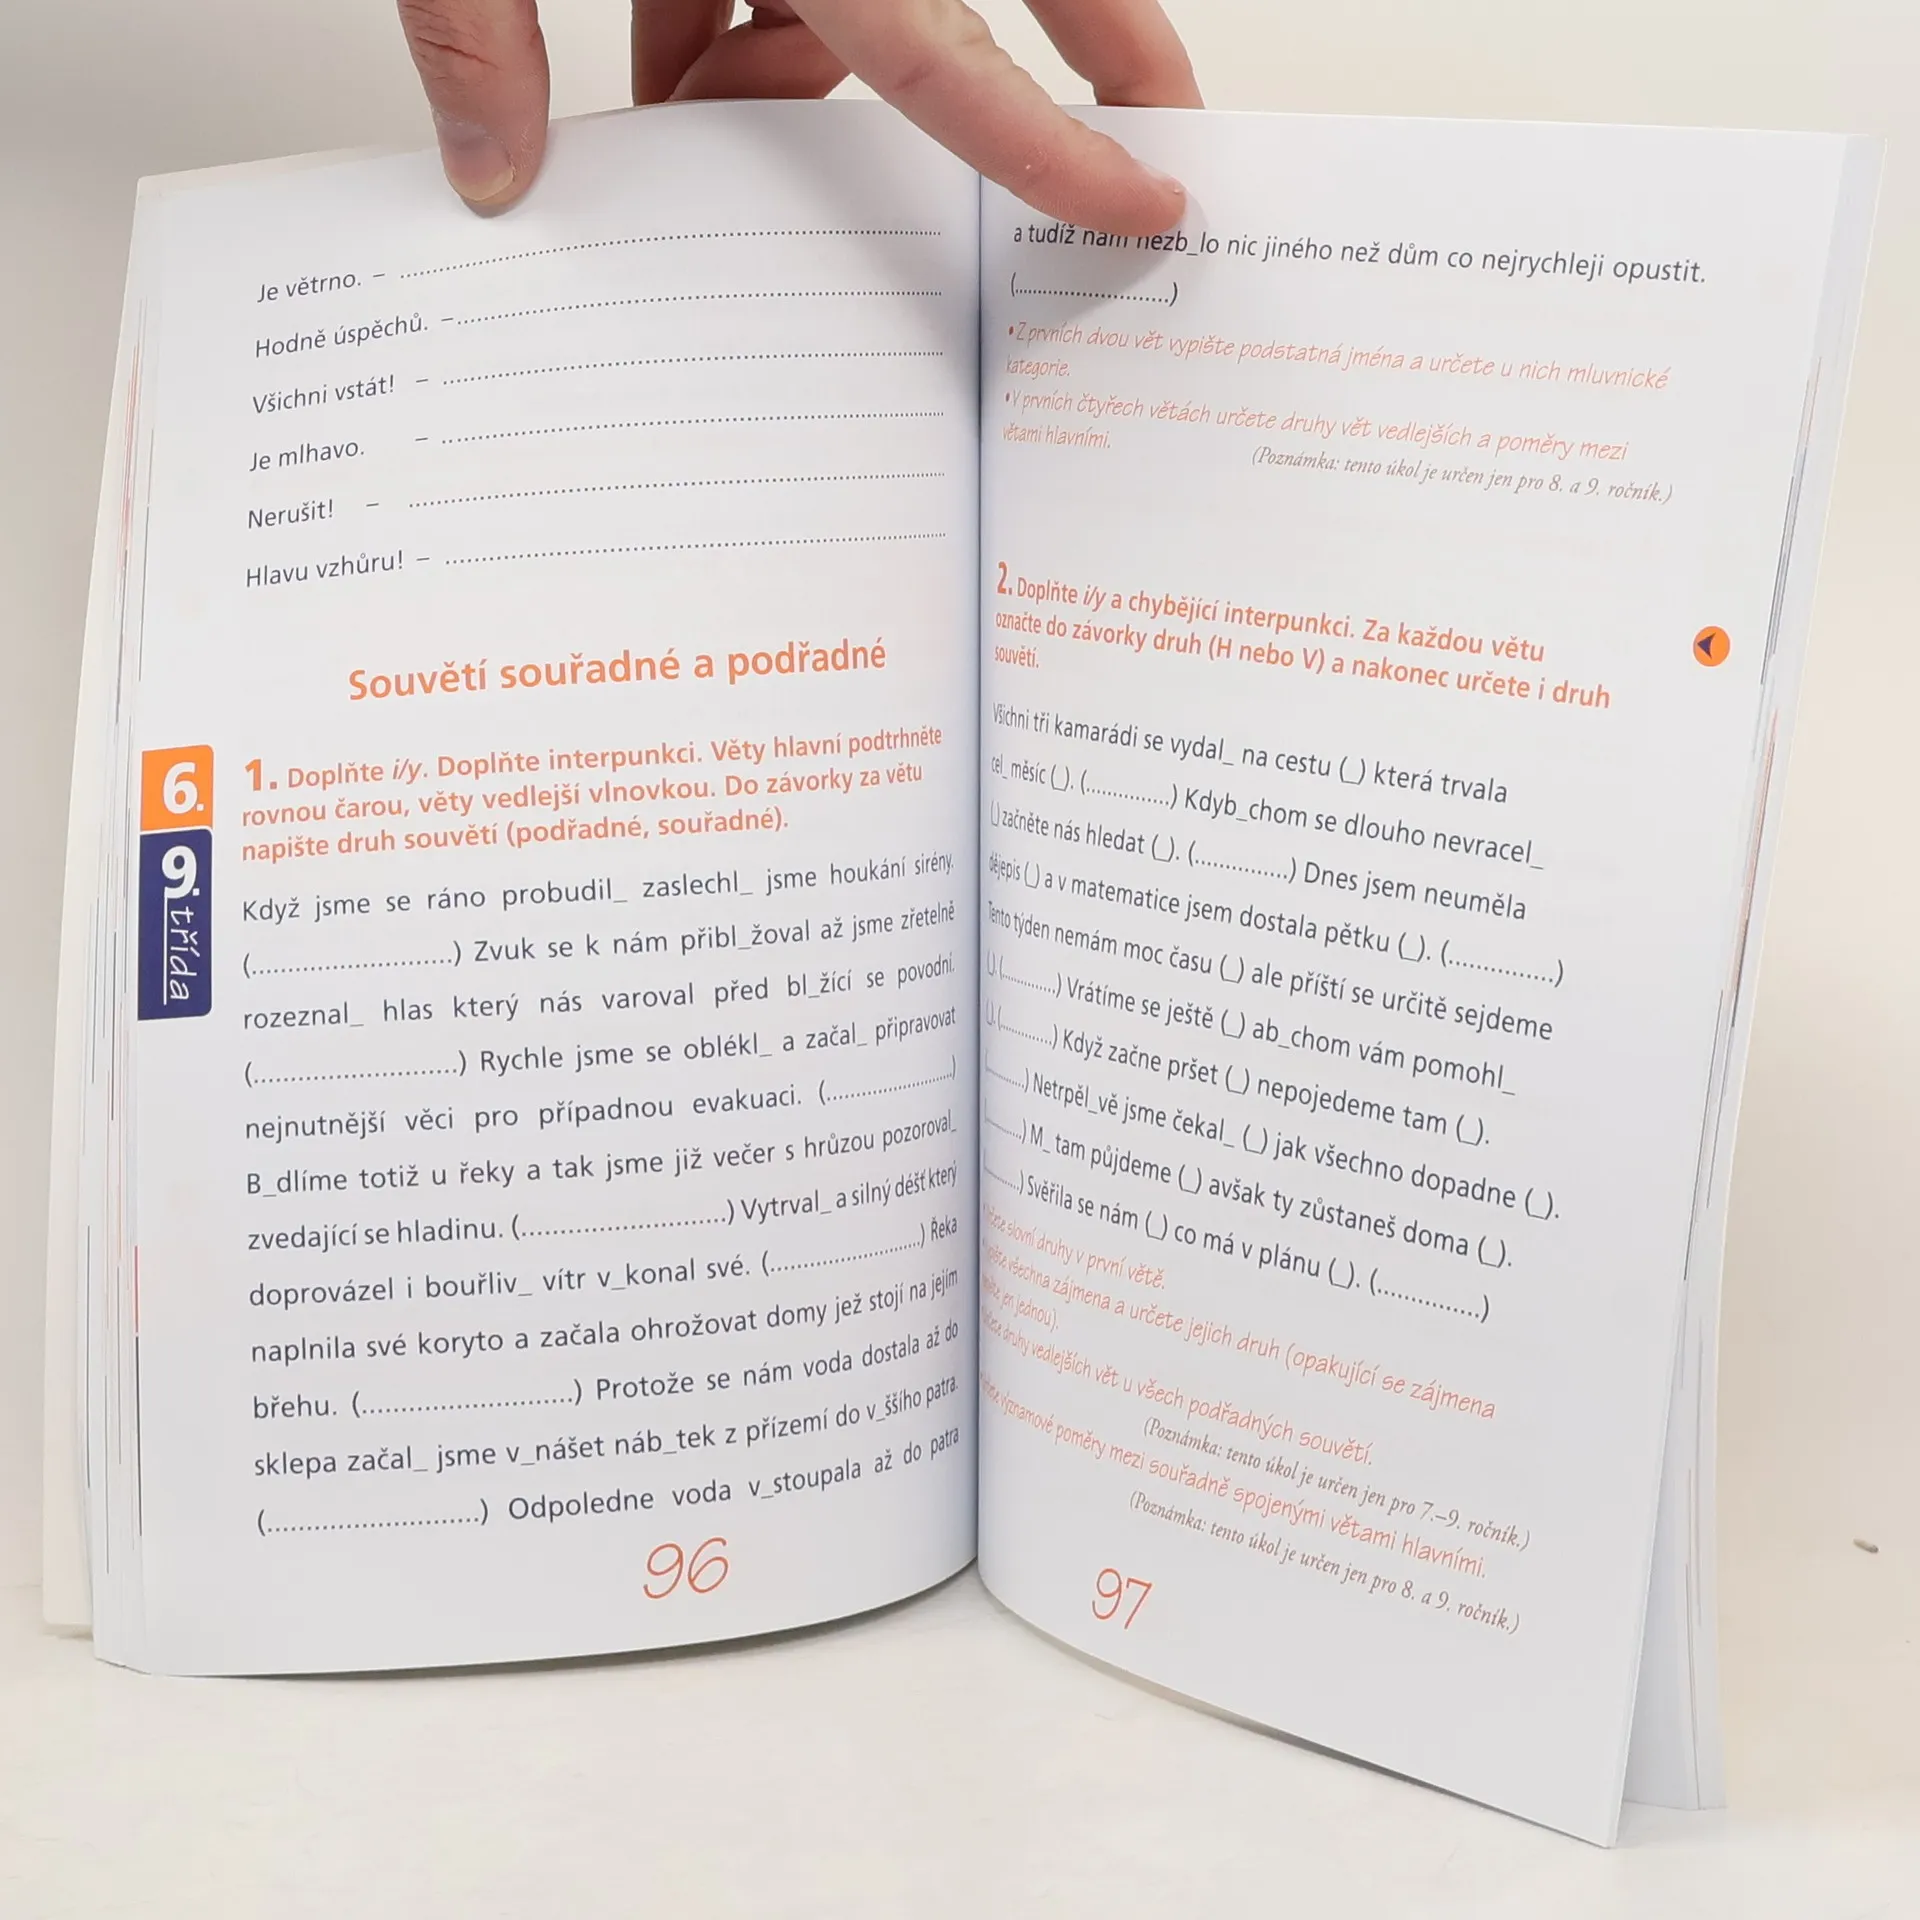 Je větrno. – ........................................
Hodně úspěchů. –........................................
Všichni vstát! – ........................................
Je mlhavo. – ........................................
Nerušit! – ........................................
Hlavu vzhůru! – ........................................
Souvětí souřadné a podřadné
6.
9. třída
1. Doplňte i/y. Doplňte interpunkci. Věty hlavní podtrhněte
rovnou čarou, věty vedlejší vlnovkou. Do závorky za větu
napište druh souvětí (podřadné, souřadné).
Když jsme se ráno probudil_ zaslechl_ jsme houkání sirény.
(..........................) Zvuk se k nám přibl_žoval až jsme zřetelně
rozeznal_ hlas který nás varoval před bl_žící se povodní.
(..........................) Rychle jsme se oblékl_ a začal_ připravovat
nejnutnější věci pro případnou evakuaci. (..........................)
B_dlíme totiž u řeky a tak jsme již večer s hrůzou pozoroval_
zvedající se hladinu. (..........................) Vytrval_ a silný déšť který
doprovázel i bouřliv_ vítr v_konal své. (..........................) Řeka
naplnila své koryto a začala ohrožovat domy jež stojí na jejím
břehu. (..........................) Protože se nám voda dostala až do
sklepa začal_ jsme v_nášet náb_tek z přízemí do v_ššího patra.
(..........................) Odpoledne voda v_stoupala až do patra
96
a tudíž nám nezb_lo nic jiného než dům co nejrychleji opustit.
(..........................)
•Z prvních dvou vět vypište podstatná jména a určete u nich mluvnické
kategorie.
•V prvních čtyřech větách určete druhy vět vedlejších a poměry mezi
větami hlavními.
(Poznámka: tento úkol je určen jen pro 8. a 9. ročník.)
2. Doplňte i/y a chybějící interpunkci. Za každou větu
označte do závorky druh (H nebo V) a nakonec určete i druh
souvětí.
Všichni tři kamarádi se vydal_ na cestu (_) která trvala
cel_ měsíc (_). (...............) Kdyb_chom se dlouho nevracel_
(_) začněte nás hledat (_). (...............) Dnes jsem neuměla
dějepis (_) a v matematice jsem dostala pětku (_). (...............)
Tento týden nemám moc času (_) ale příští se určitě sejdeme
(_). (...............) Vrátíme se ještě (_) ab_chom vám pomohl_
(_). (...............) Když začne pršet (_) nepojedeme tam (_).
(...............) Netrpěl_vě jsme čekal_ (_) jak všechno dopadne (_).
(...............) M_ tam půjdeme (_) avšak ty zůstaneš doma (_).
(...............) Svěřila se nám (_) co má v plánu (_). (...............)
slovní druhy v první větě.
všechna zájmena a určete jejich druh (opakující se zájmena
jen jednou).
druhy vedlejších vět u všech podřadných souvětí.
(Poznámka: tento úkol je určen jen pro 7.–9. ročník.)
významové poměry mezi souřadně spojenými větami hlavními.
(Poznámka: tento úkol je určen jen pro 8. a 9. ročník.)
97